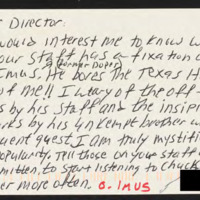 Director:
ould interest me to know w
our staff has a fixation o
(former doper)
Imus. He bores the Texas H
of me!! I weary of the off-
s by his staff and the insipi
rks by his unkempt brother w
uent guest. I am truly mystifi
popularity. Tell those on your staff
mitten, to start listening to Chuck
er more often. D. IMUS